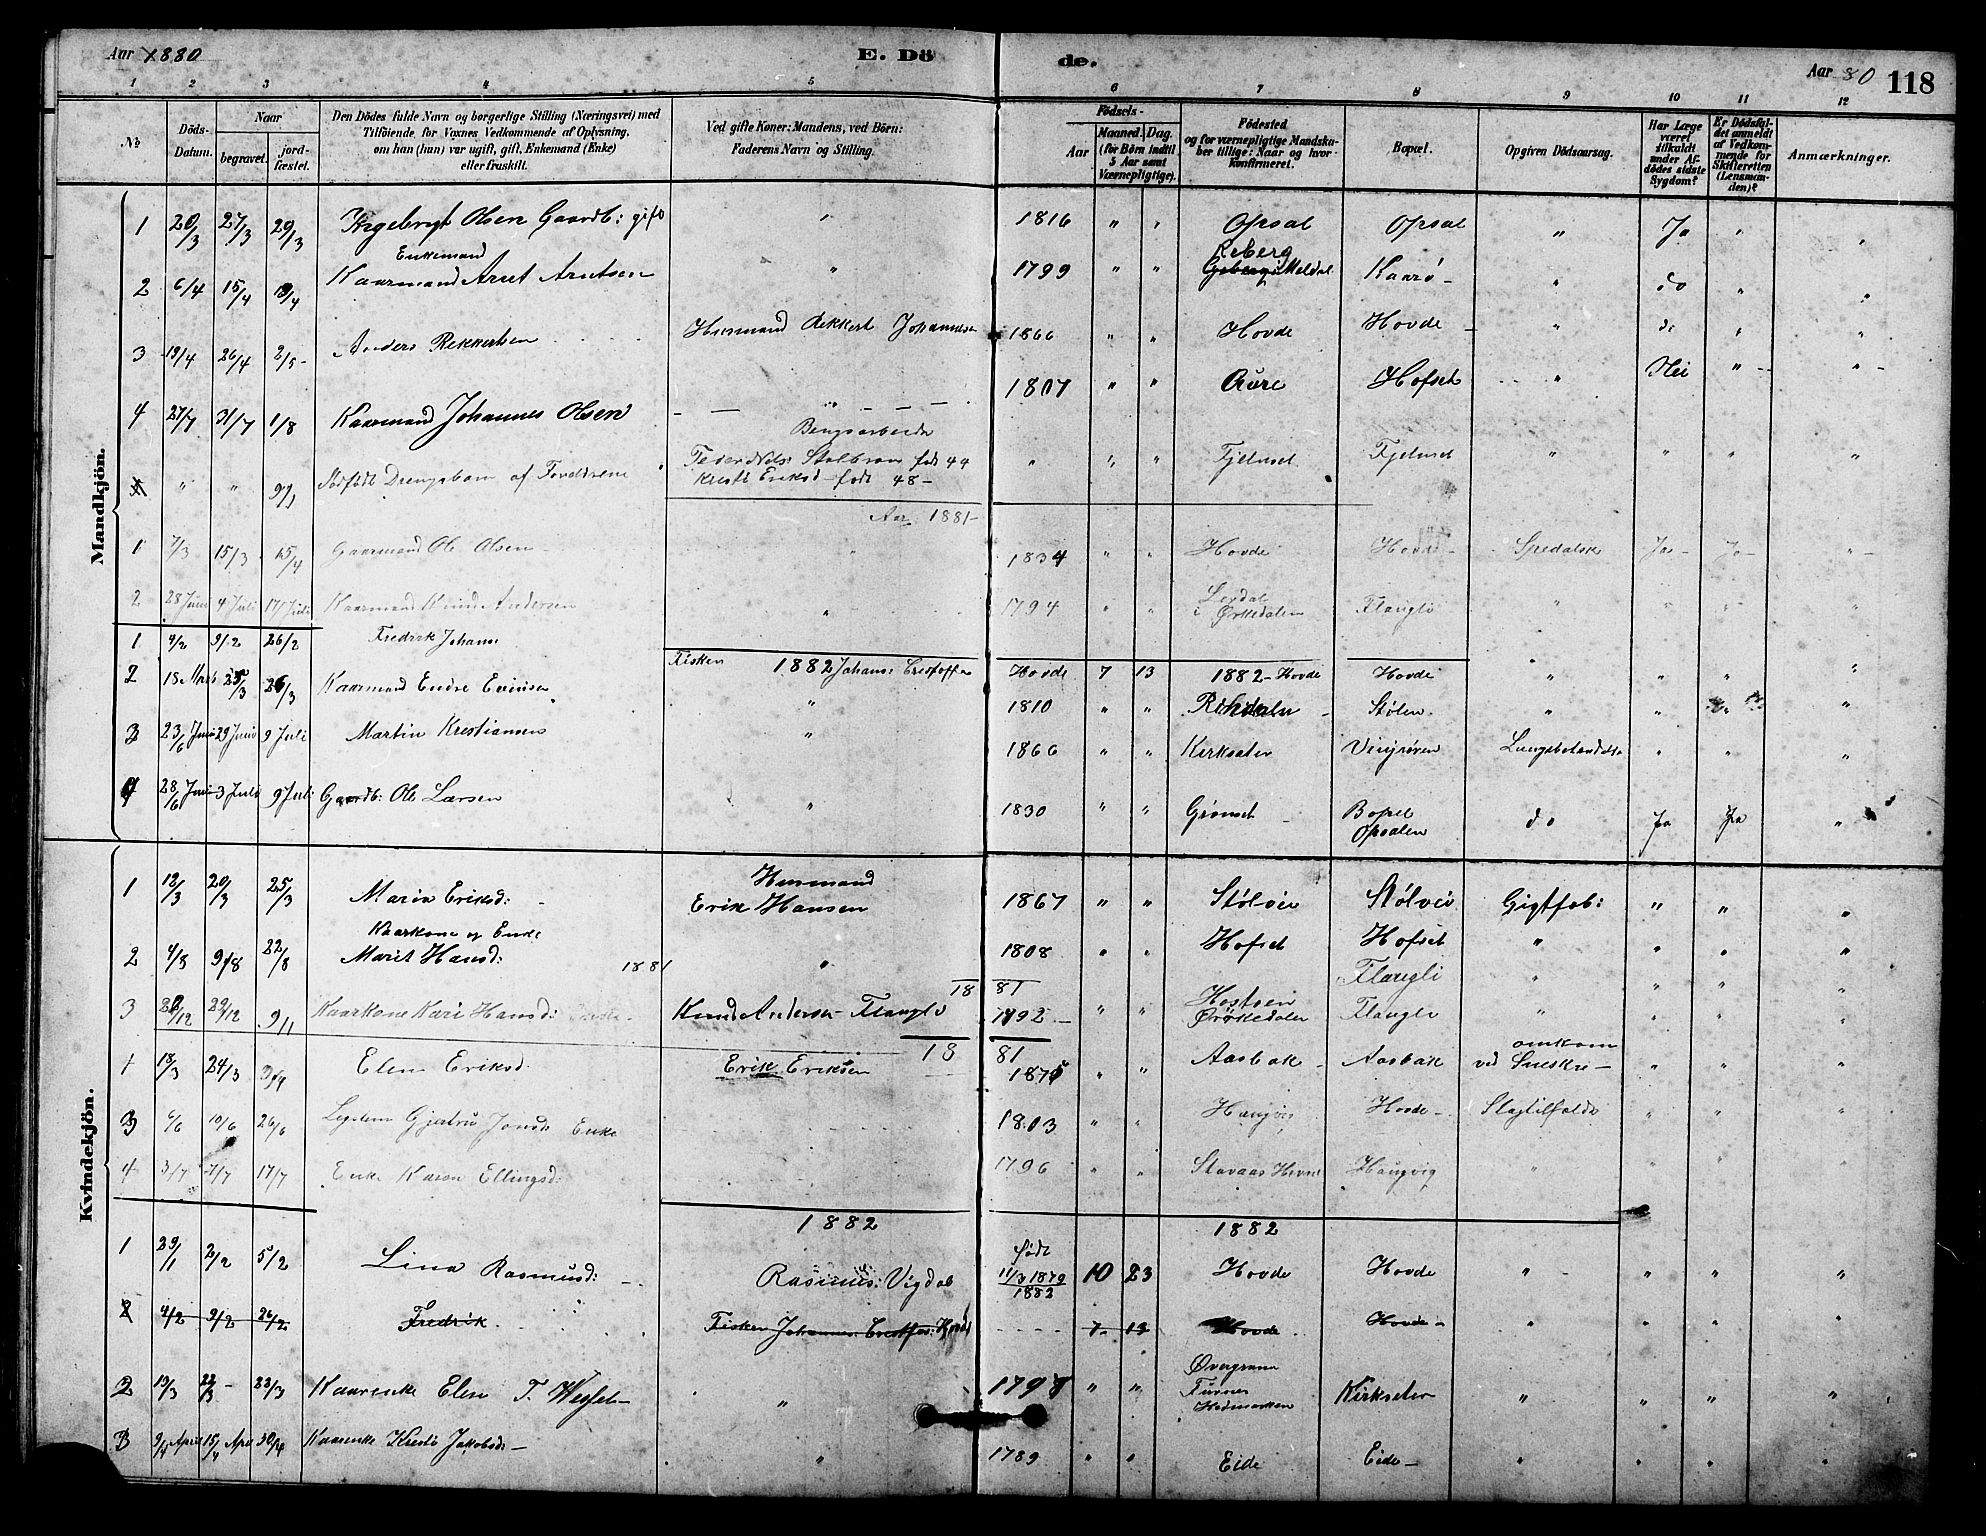 Aar 1880
E. Dö
de.
Aar 80
118
1 2 3 4 5 6 7 8 9 10 11 12
№
Döds-Datum.
Naar
begravet.
jord-fæstet.
Den Dödes fulde Navn og borgerlige Stilling (Næringsvei) med
Tilföiende for Voxnes Vedkommende af Oplysning,
om han (hun) var ugift, gift, Enkemand (Enke)
eller fraskilt.
Ved gifte Koner: Mandens, ved Börn:
Faderens Navn og Stilling.
Födsels-
Aar
Maaned. Dag.
(for Börn indtil
5 Aar samt
Værnepligtige).
Födested
og for værnepligtige Mandska-
ber tillige: Naar og hvor
konfirmeret.
Bopæl.
Opgiven Dödsaarsag.
Har Læge
været
tilkaldt
under Af-
dödes sidste
Sygdom?
Er Dödsfal-
det anmeldt
af Vedkom-
mende for
Skifteretten
(Lensman-
den)?
Anmærkninger.
Mandkjön.
1 20/3 27/3 29/3 Ingebrigt Olsen Gaardb: gift " 1816 " " Opsal Opsal " Ja " "
Enkemand
Reberg
2 6/4 15/4 19/4 Kaarmand Arnt Arntsen " 1799 " " i Meldal Kaarø " do " "
3 19/4 26/4 2/5 Anders Rekkertsen Husmand Rekkert Johannesen 1866 " " Hovde Hovde " do " "
4 27/7 31/7 1/8 Kaarmand Johannes Olsen " 1807 " " Aure Hofset " Nei " "
Bengsarbeider
" " 9/1 Dødfødt Drengebarn af Forældrene Peder Nils: Stolbroen født 44 " " " Fjelnset Fjelnset " " " "
Kresti Eriksd født 48
Aar 1881
1 7/3 15/3 15/4 Gaarmand Ole Olsen " 1834 " " Hovde Hovde Spedalske Ja Ja "
2 28 Juni 4 Juli 17 Juli Kaarmand Knud Andersen " 1794 " " i Ørkedalen Flaugli " " " "
1 4/2 9/2 26/2 Fredrik Johans:
Fisker 1882 Johans: Crestoffer Hovde 7 13 1882 - Hovde Hovde " " " "
2 18 Marts 25/3 26/3 Kaarmand Endre Evensen " 1810 " " Stølen " " " "
3 23/6 Juni 29 Juni 9 Juli Martin Krestiansen " 1866 " " Kerksæter Vingrøven Lungebetændelse " " "
4 28/6 Juni 3 Juli 9 Juli Gaardb: Ole Larsen " 1830 " " Grønset Bopel Opsalen do Ja Ja "
Kvindekjön.
Husmand
1 12/3 20/3 25/3 Maria Eriksd: Erik Hansen 1867 " " Stølvei Stølvei Gigtfeb: " " "
Kaarkone og Enke
2 4/8 9/8 22/8 Marit Hansd: " 1808 " " Hofset Hofset " " " "
1881
18 81 Flaugli
3 22/12 29/12 9/1 Kaarkone Kari Hansd: Knud Andersen Flaugli 1792 " " Ørkedalen Flaugli " " " "
18 81
1 18/3 24/3 3/4 Elen Eriksd. Erik Eriksen 1875 " " Aasbak Aasbak omkom ved Sneskre " " "
3 6/6 10/6 26/6 Legdem Gjertru Jonsd: Enke 1803 " " Haugvig Hovde Slagtilfælde " " "
4 3/7 7/7 17/7 Enke Karen Ellingsd: 1796 " " Stavaas Hevne Haugvig " " " "
1882 1882
1 29/1 2/2 5/2 Lina Rasmusd: Rasmus: Vigdal født 11/3 1879 1882 10 23 Hovde Hovde " " " "
2 4/2 9/2 26/2 Fredrik Fisker Johannes: Crestfer: Hovde 7 13 Hovde Hovde " " " "
2 19/3 22/3 23/3 Kaarenke Elen T. Wessel " 1797 " " Øvergrana Furnes Hedmarken Kirksæter " " " "
3 9/4 April 15/4 April 30/4 Kaarenke Kresti Jakobsd: " 1789 " " Eide Eide " " " "